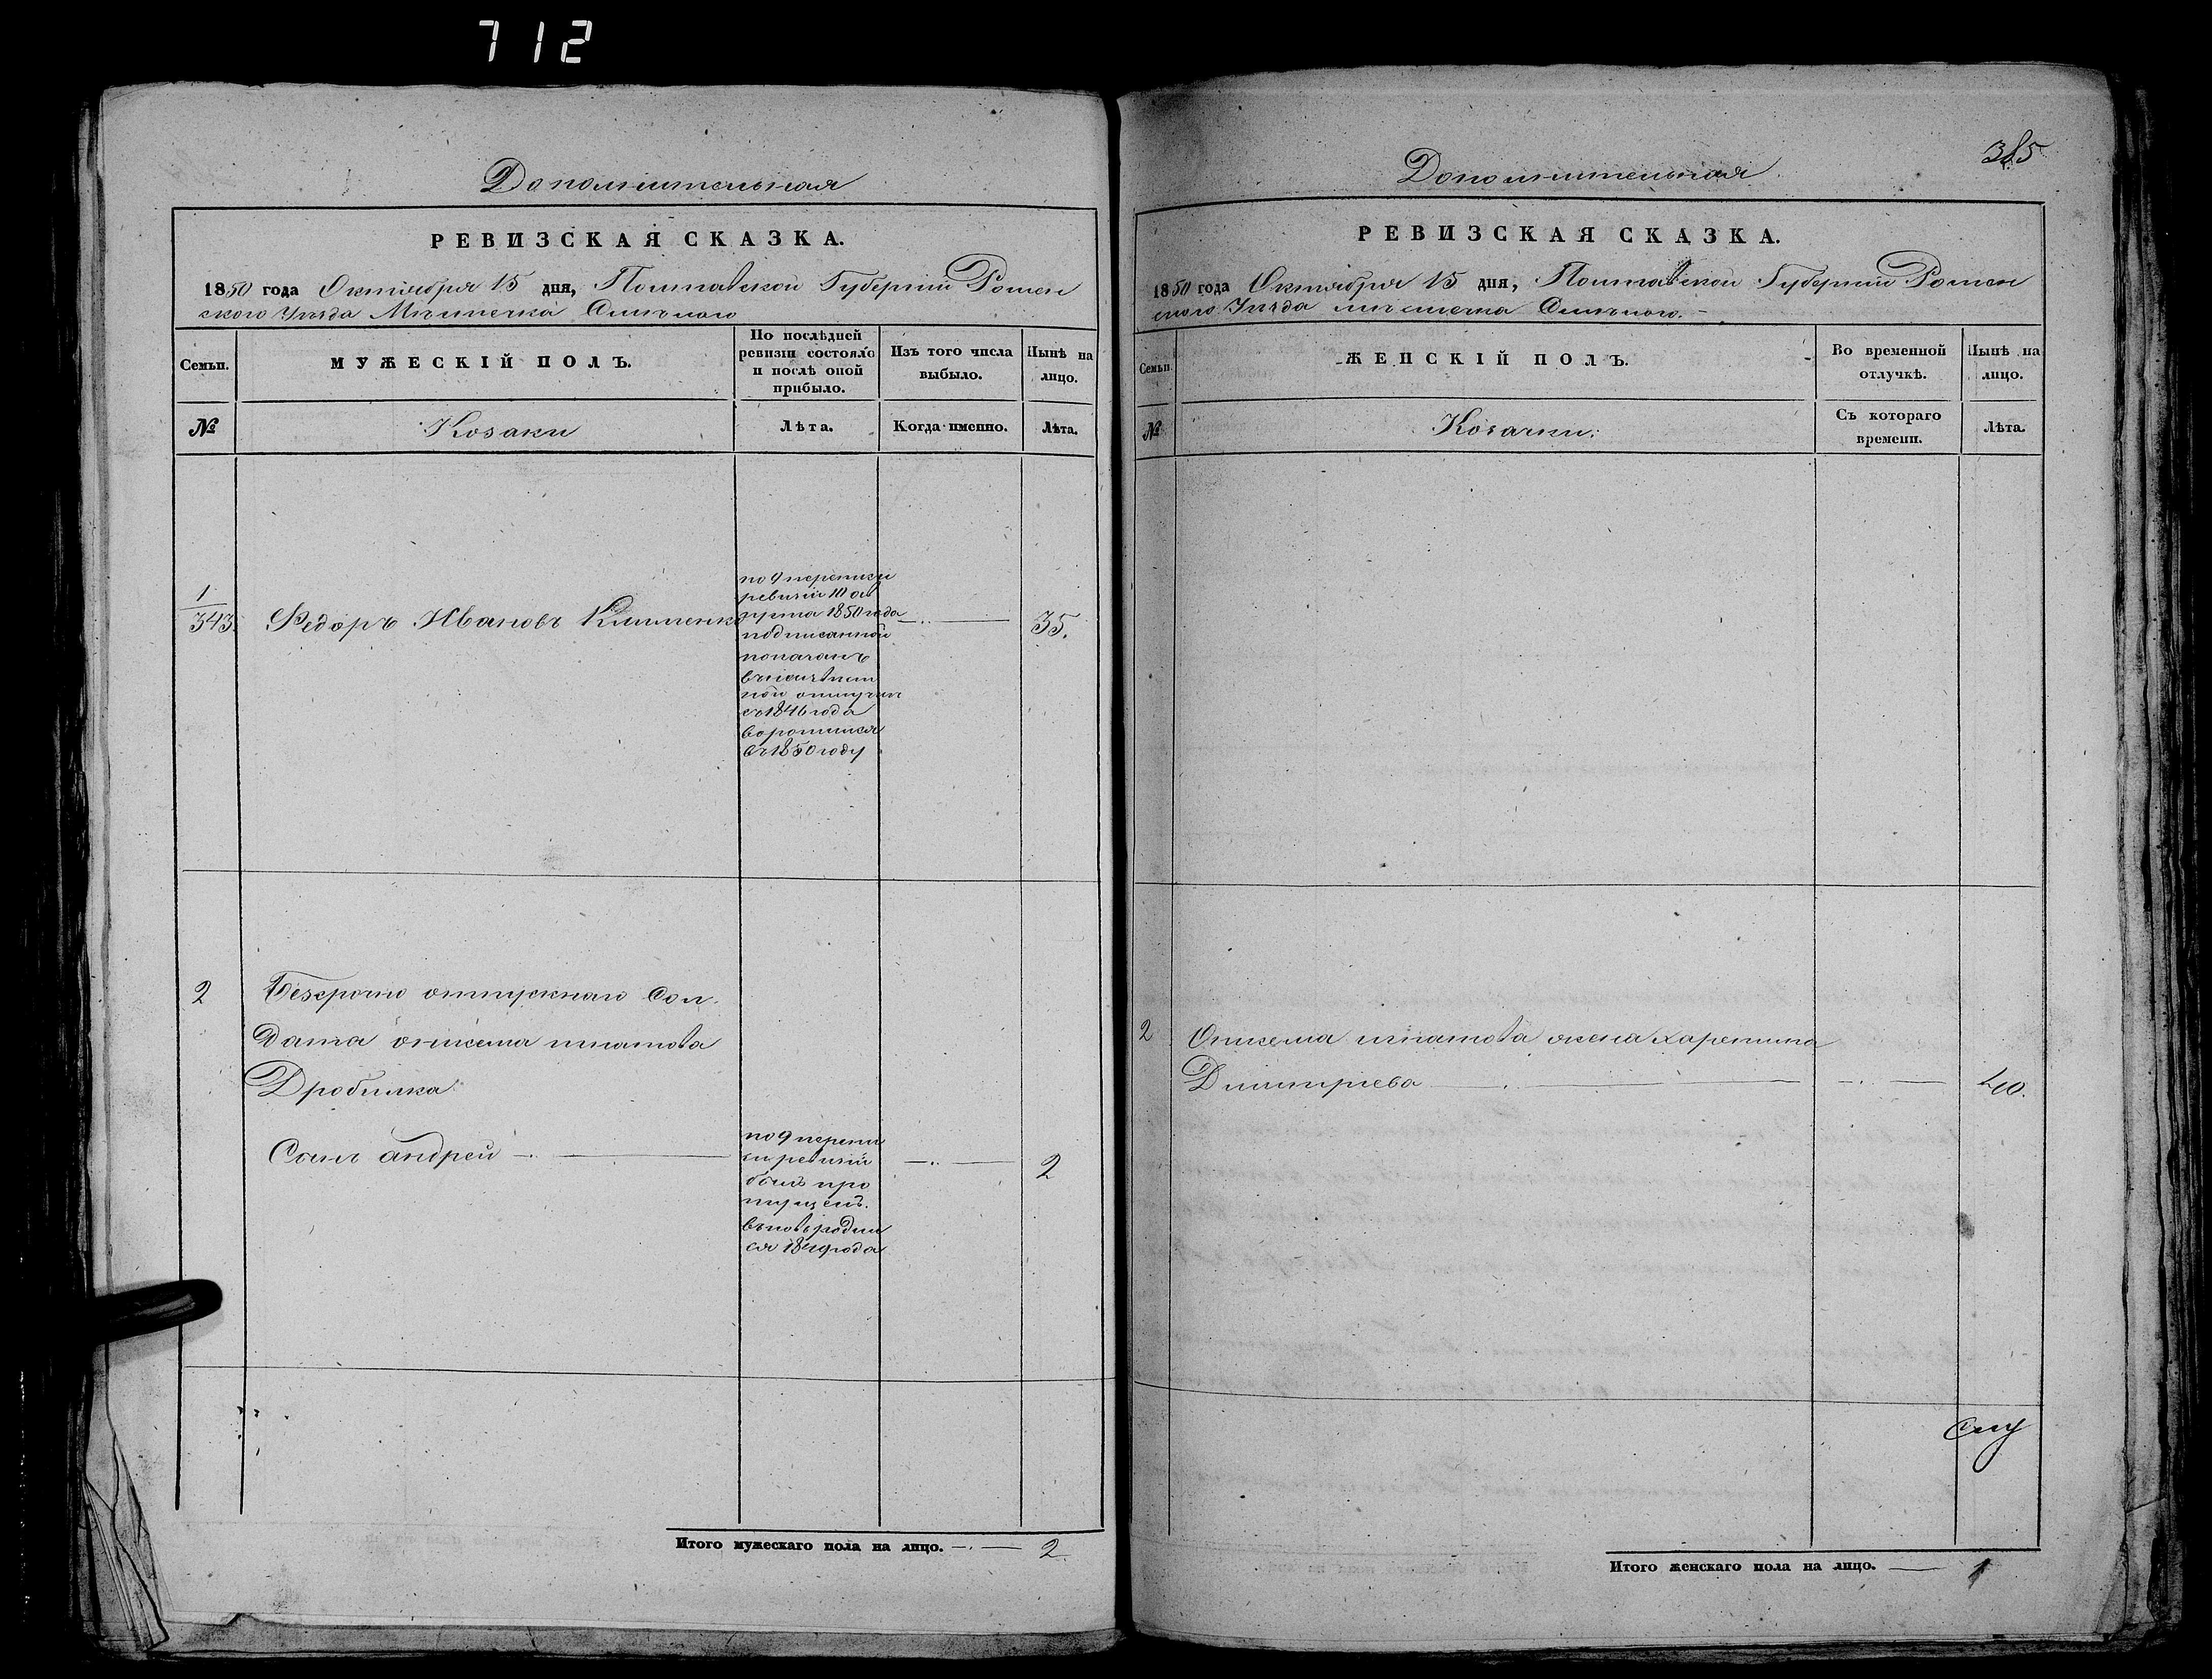 712
Дополнительная
РЕВИЗСКАЯ СКАЗКА.
1850 года Октября 15 дня, Полтавской Губернии Ромен
ского Уѣзда Мѣстечка Смѣлого
Семьи.
МУЖЕСКІЙ ПОЛЪ.
По послѣдней
ревизіи состояло
и послѣ оной
прибыло.
Изъ того числа
выбыло.
Нынѣ на
лицо.
№
Козаки
Лѣта.
Когда именно.
Лѣта.
1
343.
Федоръ Ивановъ Клименко
по 9 переписи
ревизіи 10 ав
густа 1850 года
подписанной
показанъ
въ неизвѣст
ной отлучкѣ
съ 1846 года
воротился
въ 1850 году
35.
2
Безсрочно отпускнаго Сол
дата Онисима Игнатова
Дробилка
Сынъ андрей
по 9 перепи
си ревизіи
былъ про
пущенъ.
вновь родил
ся 1849 года
2
Итого мужескаго пола на лицо. 2
385
Дополнительная
РЕВИЗСКАЯ СКАЗКА.
1850 года Октября 15 дня, Полтавской Губернии Ромен
ского Уѣзда мѣстечка Смѣлого.
Семьи.
ЖЕНСКІЙ ПОЛЪ.
Во временной
отлучкѣ.
Нынѣ на
лицо.
№
Козачки.
Съ котораго
времени.
Лѣта.
2
Онисема игнатова жена Харетина
Димитріева
40.
Итого женскаго пола на лицо. 1